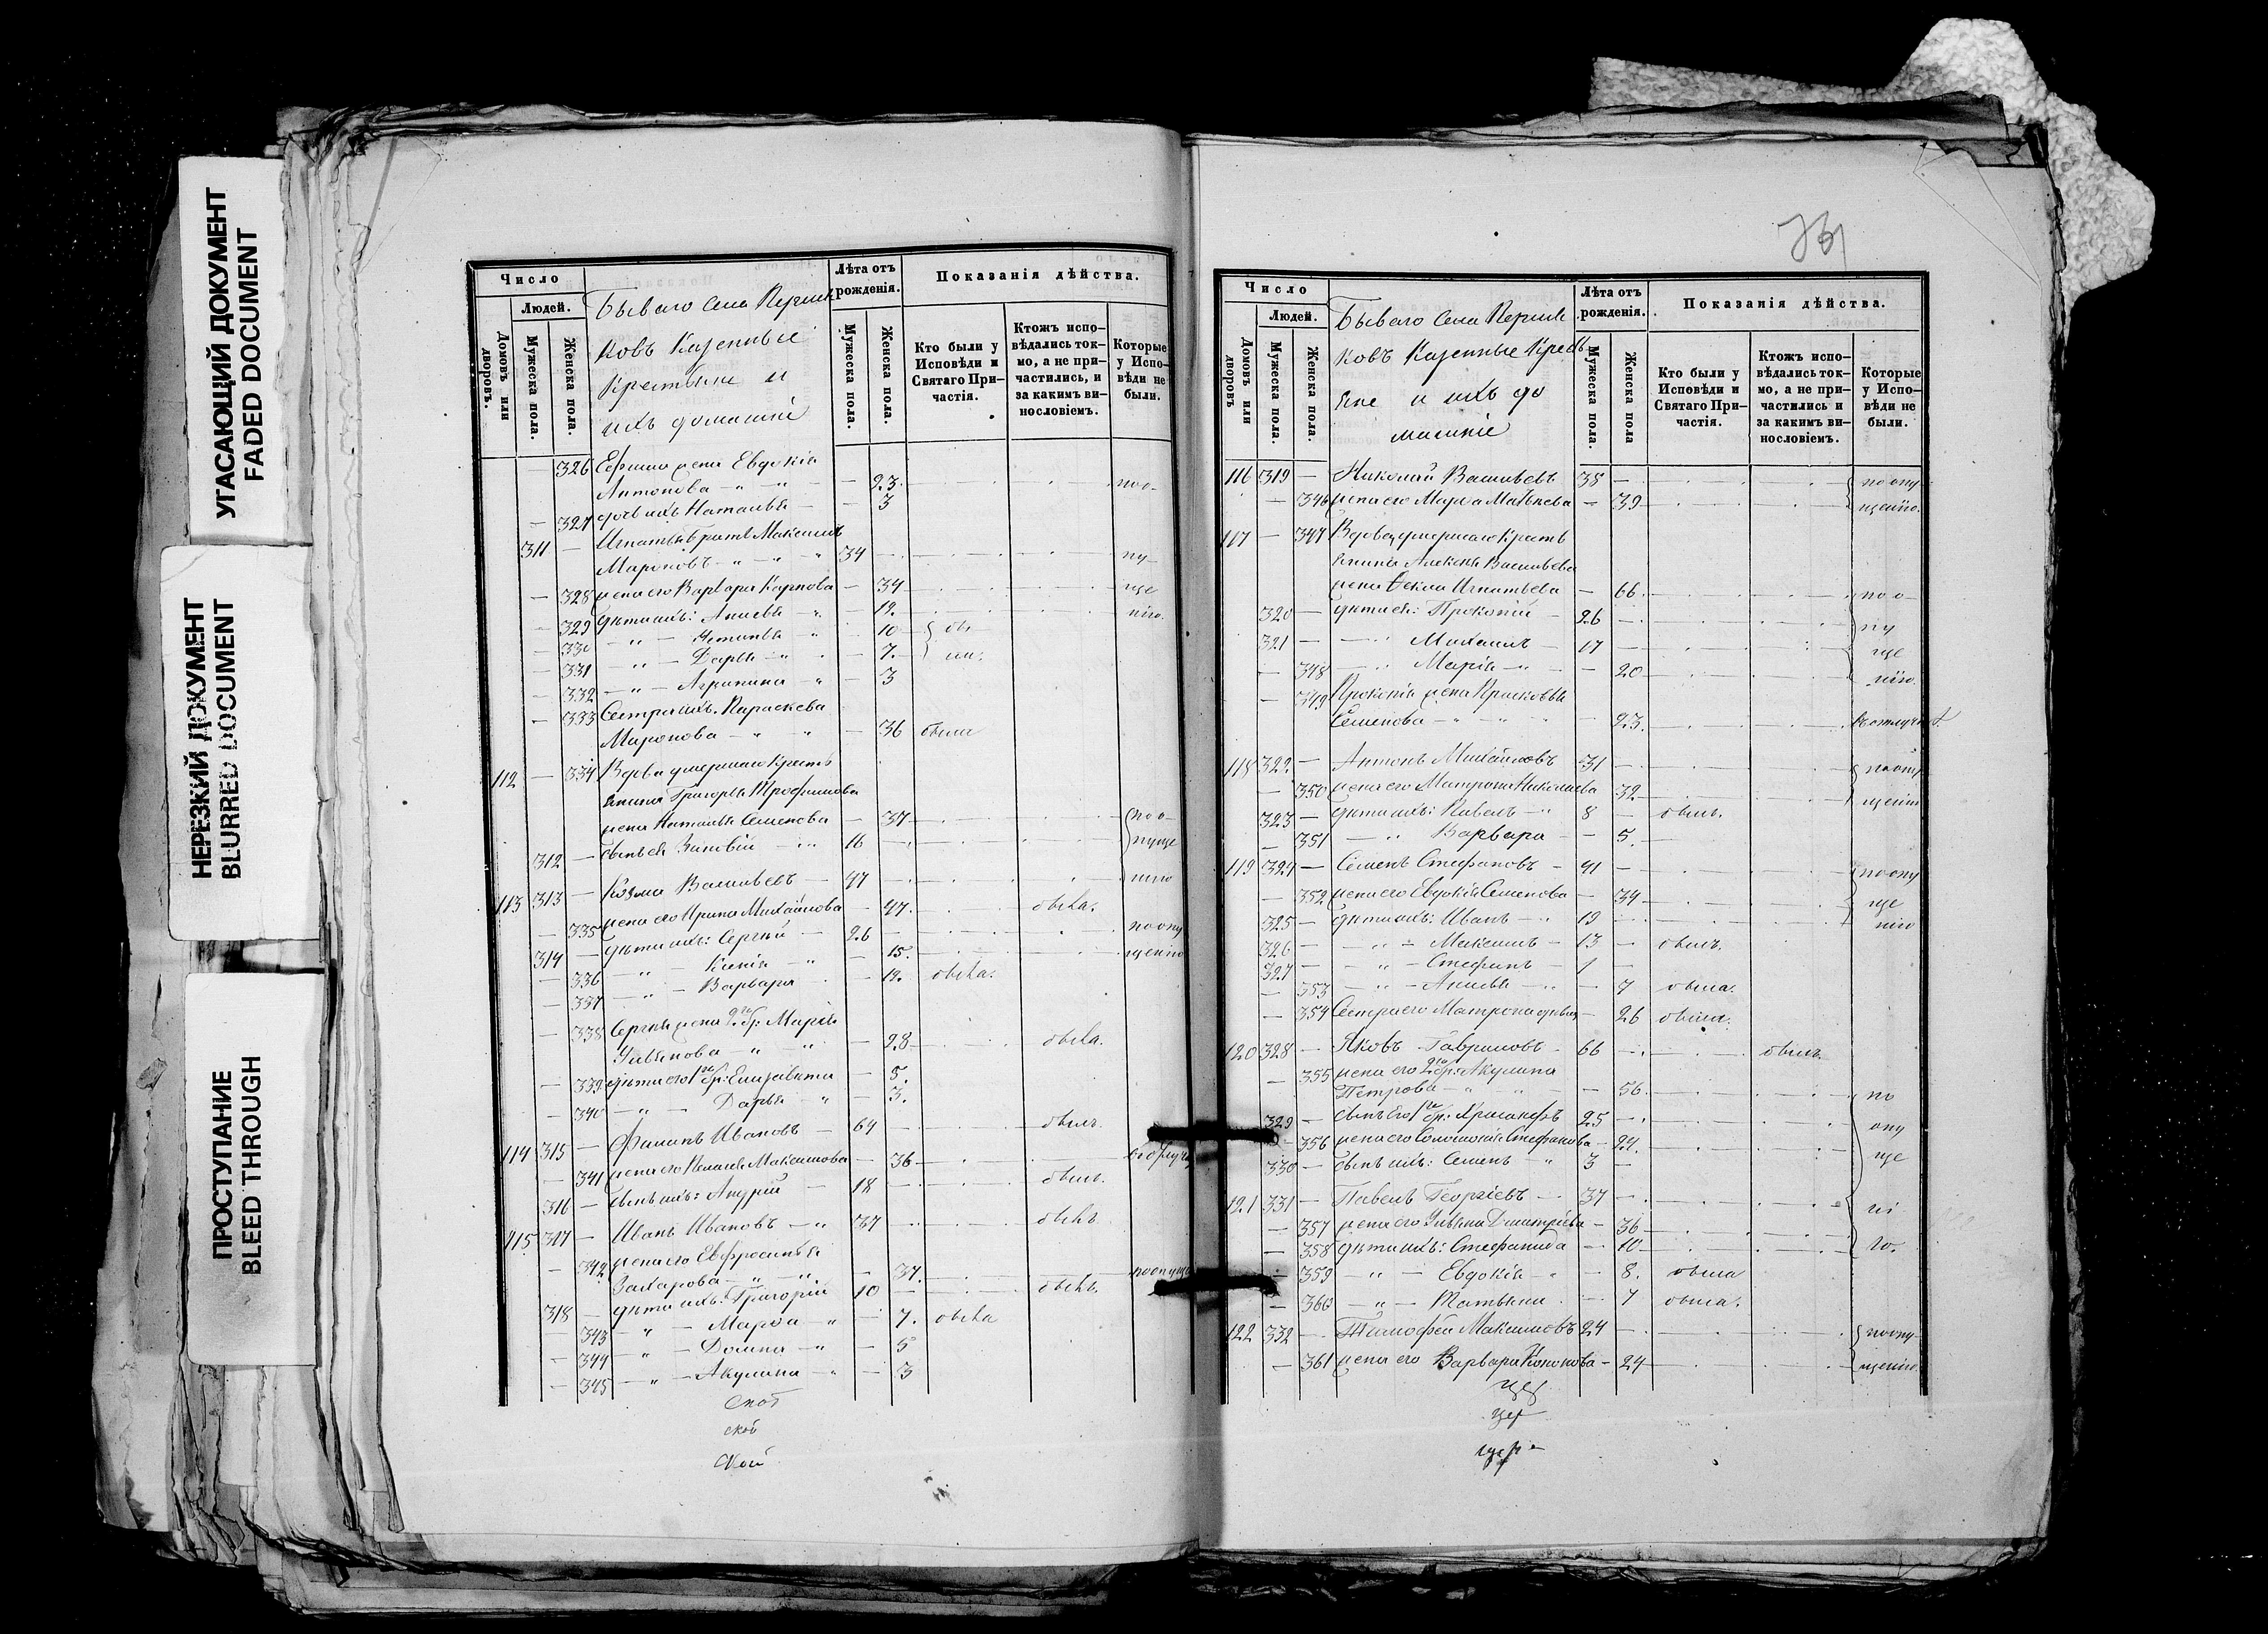 УГАСАЮЩИЙ ДОКУМЕНТ
FADED DOCUMENT
НЕРЕЗКИЙ ДОКУМЕНТ
BLURRED DOCUMENT
ПРОСТУПАНИЕ
BLEED THROUGH
Число
Людей.
Домовъ или дворовъ.
Мужеска пола.
Женска пола.
Бываго Села
ковъ Казенные
Крестьяне и
ихъ домашніе
Лѣта отъ рожденія.
Мужеска пола.
Женска пола.
Показанія дѣйства.
Кто были у Исповѣди и Святаго При-частія.
Ктожъ испо-вѣдались ток-мо, а не при-частились, и за какимъ ви-нословіемъ.
Которые у Испо-вѣди не были.
— 326 Ефима жена Евдокія
Антонова — 23. по о-
— 327 дочь ихъ Наталья — 3
311 — Игнатья братъ Максимъ
Мироновъ 34 — пу-
— 328 жена его Варвара Карпова — 34 ще
— 329 дѣти ихъ: Анисья — 12. нію.
— 330 — 10
— 331 Дарья — 7.
— 332 Агрипина — 3
— 333 Сестра ихъ Параскева
Миронова — 36 была
112 — 334 Вдова умершаго Кресть
янина Григорья Трофимова
жена Наталья Семенова — 37 по о-
312 — сынъ ея Зиновій 16 — пуще
нію
113 313 — Козма Васильевъ — 47
— 335 жена его Ирина Михайлова — 47. была.
314 — дѣти ихъ: Сергѣй — 26 — по опу
— 336 Ксенія — 15. щенію
— 337 Варвара — 12. была.
— 338 Сергѣя жена 2го бр: Марія
Ульянова — 28 была.
— 339 дѣти его 1го бр: Елизавета — 5.
— 340 Дарья — 3.
114 315 — Филипъ Ивановъ — 64 былъ.
— 341 жена его Пелагея Максимова — 36
316 — сынъ ихъ: Андрей — 18 — былъ.
115 317 — Иванъ Ивановъ — 37 былъ
— 342 жена его Евфросинья
Захарова — 37. по опущ
318 — дѣти ихъ: Григорій 10 — былъ.
— 343 Марѳа — 7. была
— 344 Домна — 5
— 345 Акулина — 3
ской
ской
Число
Людей.
Домовъ или дворовъ
Мужеска пола.
Женска пола.
Бываго Села
ковъ Казенные Кресть
яне и ихъ до
машніе
Лѣта отъ рожденія.
Мужеска пола.
Женска пола
Показанія дѣйства.
Кто были у Исповѣди и Святаго При-частія.
Ктожъ испо-вѣдались ток-мо, а не при-частились и за какимъ ви-нословіемъ.
Которые у Испо-вѣди не были.
116 319 — Николай Васильевъ 38 — по опу
— 346 жена его Марѳа Матвѣева — 39 щенію.
117 — 347 Вдова умершаго Кресть
янина Алексѣя Васильева
жена Ѳекла Игнатьева — 66. по о-
320 — дѣти ея: Прокопій — 26 — пу
321 — Михаилъ — 17 — ще
— 348 Марія — 20 нію.
— 349 Прокопія жена Прасковья
Семенова — 23.
118 322 — Антонъ Михайловъ 31 — по опу
— 350 жена его Матрона Николаева 32 щенію
323 — дѣти ихъ: Павелъ 8 — былъ.
— 351 Варвара — 5.
119 324 — Семенъ Стефановъ — 41 — по опу
— 352 жена его Евдокія Семенова — 34 ще
325 — дѣти ихъ: Иванъ — 19 нію
326 — Максимъ — 13 — былъ.
327 — Стефанъ — 1 —
— 353 Анисья — 7 была.
— 354 Сестра его Матрона дѣвица — 26 была.
120 328 — Яковъ Гавриловъ — 66 — былъ
— 355 жена его 2го бр: Акулина
Петрова — 56. по
329 — сынъ его 1го бр: 25 — опу
— 356 жена его Соломонія Стефанова — 24. ще
330 — сынъ ихъ: Семенъ 3 —
121 331 — Павелъ Георгіевъ — 37 — ні
— 357 жена его Ульяна Дмитріева — 36
— 358 дѣти ихъ: Стефанида — 10 ю.
— 359 Евдокія — 8. была
— 360 Татьяна — 7 была.
122 332 — Тимофей Максимовъ 24 — по опу
— 361 жена его Варвара Кононова — 24 щенію.
цер
цер